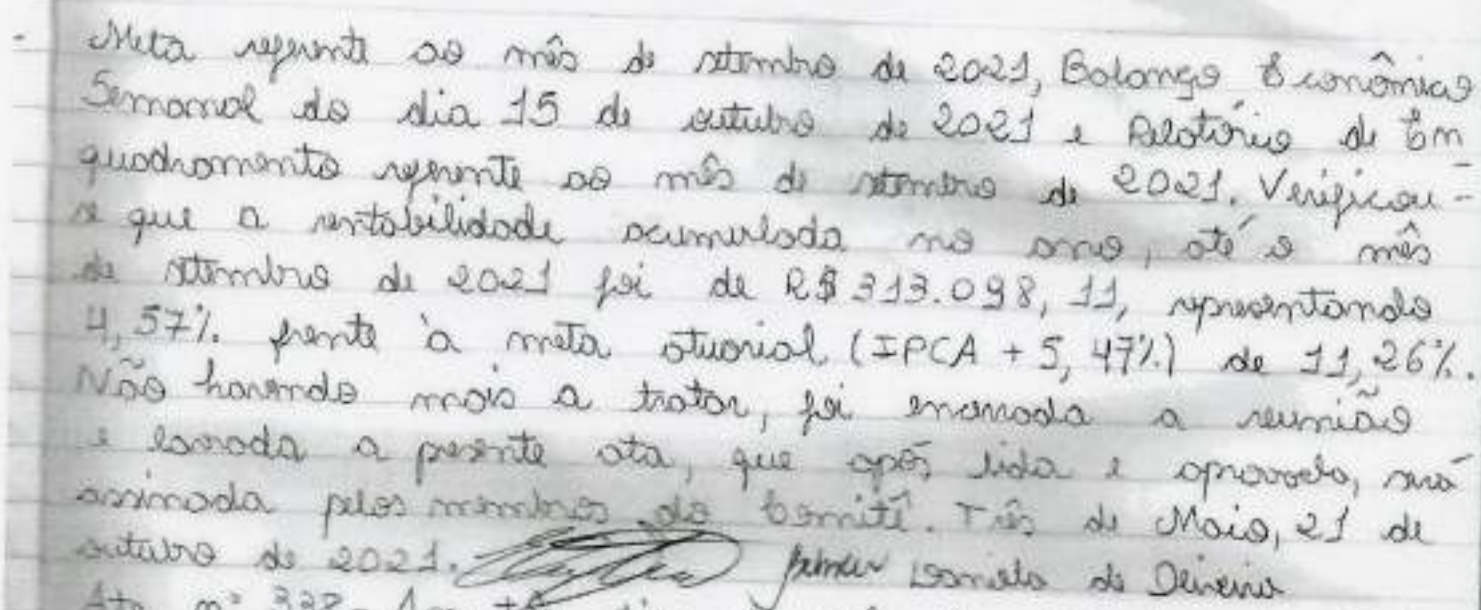 Meta referente ao mês de setembro de 2021, Balanço Econômico
Semanal do dia 15 de outubro de 2021 e Relatório de En
quadramento referente ao mês de setembro de 2021. Verificou-
se que a rentabilidade acumulada no ano, até o mês
de setembro de 2021 foi de R$ 313.098,11, representando
4,57% frente à meta atuarial (IPCA + 5,47%) de 11,26%.
Não havendo mais a tratar, foi encerrada a reunião
e lavrada a presente ata, que após lida e aprovada, será
assinada pelos membros do Comitê. Três de Maio, 21 de
outubro de 2021. de Oliveira
Ata nº